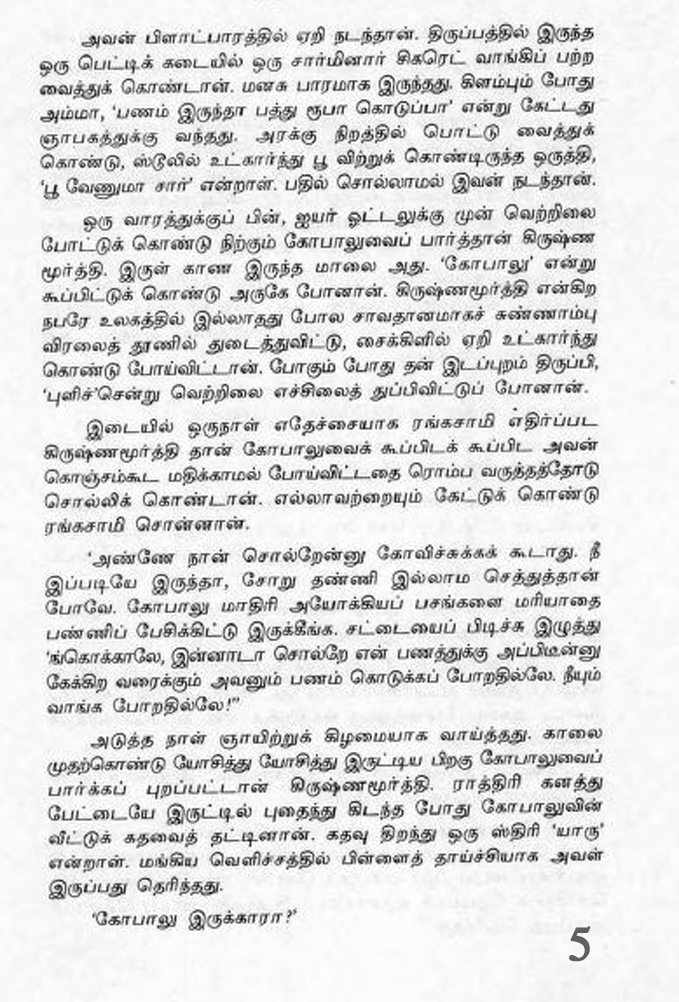 அவன் பிளாட்பாரத்தில் ஏறி நடந்தான். திருப்பத்தில் இருந்த
ஒரு பெட்டிக் கடையில் ஒரு சார்மினார் சிகரெட் வாங்கிப் பற்ற
வைத்துக் கொண்டான். மனசு பாரமாக இருந்தது. கிளம்பும் போது
அம்மா, ‘பணம் இருந்தா பத்து ரூபா கொடுப்பா’ என்று கேட்டது
ஞாபகத்துக்கு வந்தது. அரக்கு நிறத்தில் பொட்டு வைத்துக்
கொண்டு, ஸ்டூலில் உட்கார்ந்து பூ விற்றுக் கொண்டிருந்த ஒருத்தி,
‘பூ வேணுமா சார்’ என்றாள். பதில் சொல்லாமல் இவன் நடந்தான்.
ஒரு வாரத்துக்குப் பின், ஐயர் ஓட்டலுக்கு முன் வெற்றிலை
போட்டுக் கொண்டு நிற்கும் கோபாலுவைப் பார்த்தான் கிருஷ்ண
மூர்த்தி. இருள் காண இருந்த மாலை அது. ‘கோபாலு’ என்று
கூப்பிட்டுக் கொண்டு அருகே போனான். கிருஷ்ணமூர்த்தி என்கிற
நபரே உலகத்தில் இல்லாதது போல சாவதானமாகச் சுண்ணாம்பு
விரலைத் தூணில் துடைத்துவிட்டு, சைக்கிளில் ஏறி உட்கார்ந்து
கொண்டு போய்விட்டான். போகும் போது தன் இடப்புறம் திருப்பி,
‘புளிச்’சென்று வெற்றிலை எச்சிலைத் துப்பிவிட்டுப் போனான்.
இடையில் ஒருநாள் எதேச்சையாக ரங்கசாமி எதிர்ப்பட
கிருஷ்ணமூர்த்தி தான் கோபாலுவைக் கூப்பிடக் கூப்பிட அவன்
கொஞ்சம்கூட மதிக்காமல் போய்விட்டதை ரொம்ப வருத்தத்தோடு
சொல்லிக் கொண்டான். எல்லாவற்றையும் கேட்டுக் கொண்டு
ரங்கசாமி சொன்னான்.
‘அண்ணே நான் சொல்றேன்னு கோவிச்சுக்கக் கூடாது. நீ
இப்படியே இருந்தா, சோறு தண்ணி இல்லாம செத்துத்தான்
போவே. கோபாலு மாதிரி அயோக்கியப் பசங்களை மரியாதை
பண்ணிப் பேசிக்கிட்டு இருக்கீங்க. சட்டையைப் பிடிச்சு இழுத்து
‘ங்கொக்காலே, இன்னாடா சொல்றே என் பணத்துக்கு அப்பிடீன்னு
கேக்கிற வரைக்கும் அவனும் பணம் கொடுக்கப் போறதில்லே. நீயும்
வாங்க போறதில்லே!”
அடுத்த நாள் ஞாயிற்றுக் கிழமையாக வாய்த்தது. காலை
முதற்கொண்டு யோசித்து யோசித்து இருட்டிய பிறகு கோபாலுவைப்
பார்க்கப் புறப்பட்டான் கிருஷ்ணமூர்த்தி. ராத்திரி கனத்து
பேட்டையே இருட்டில் புதைந்து கிடந்த போது கோபாலுவின்
வீட்டுக் கதவைத் தட்டினான். கதவு திறந்து ஒரு ஸ்திரி ‘யாரு’
என்றாள். மங்கிய வெளிச்சத்தில் பிள்ளைத் தாய்ச்சியாக அவள்
இருப்பது தெரிந்தது.
‘கோபாலு இருக்காரா?’
5